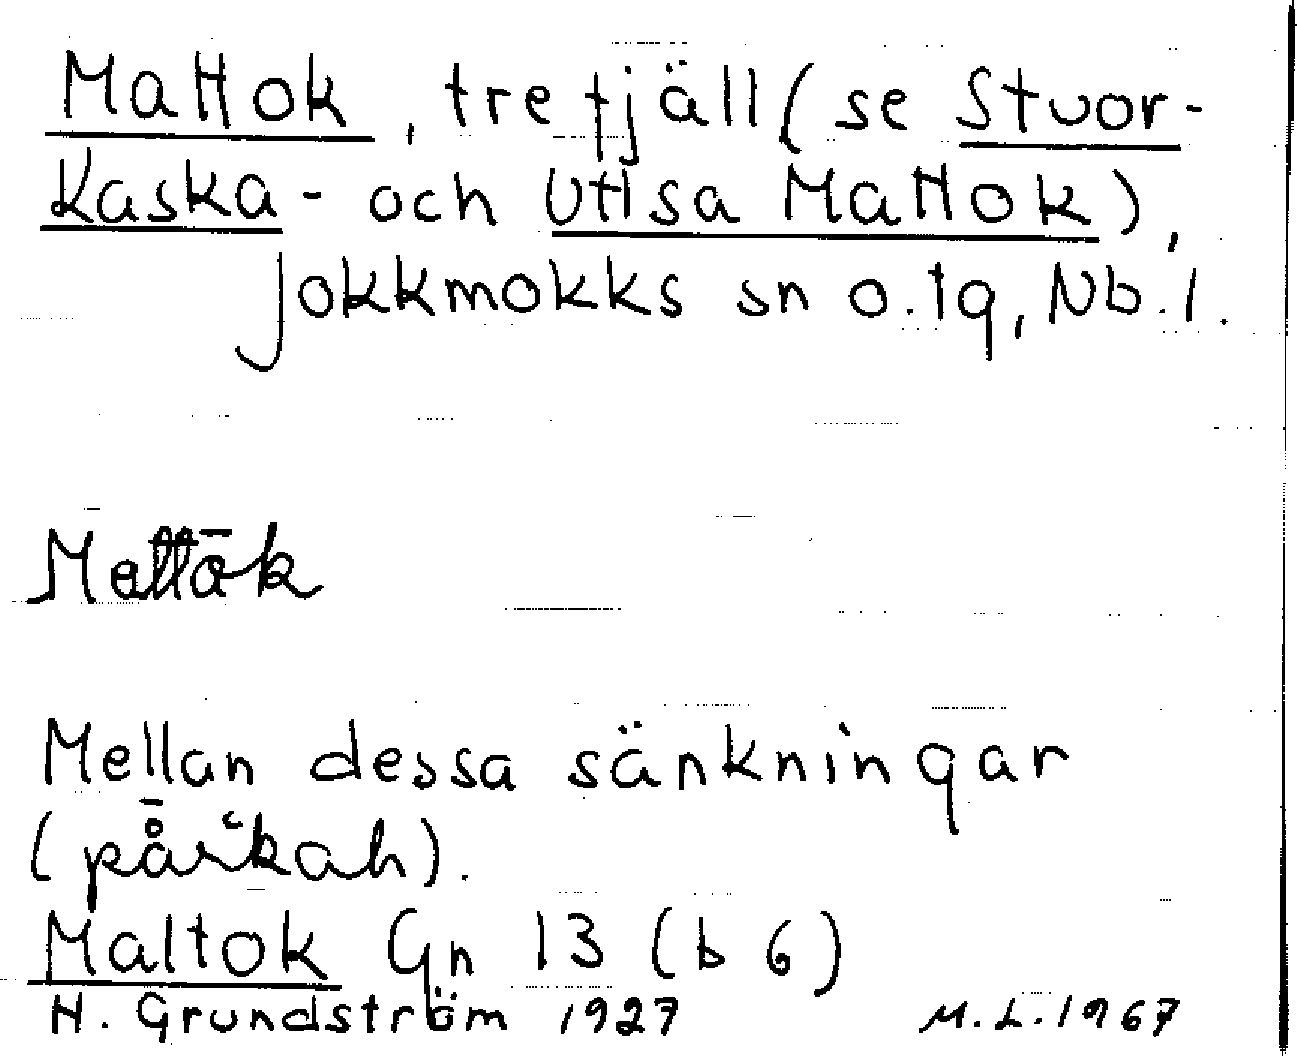 Mattok, tre fjäll (se Stuor-
Kaska- och Utsa Mattok),
Jokkmokks sn o. tg, Nb. l.
Mattōk
Mellan dessa sänkningar
(pā̊rʽkah).
Maltok Gn 13 (b 6)
H. Grundström 1927 M. L. 1967